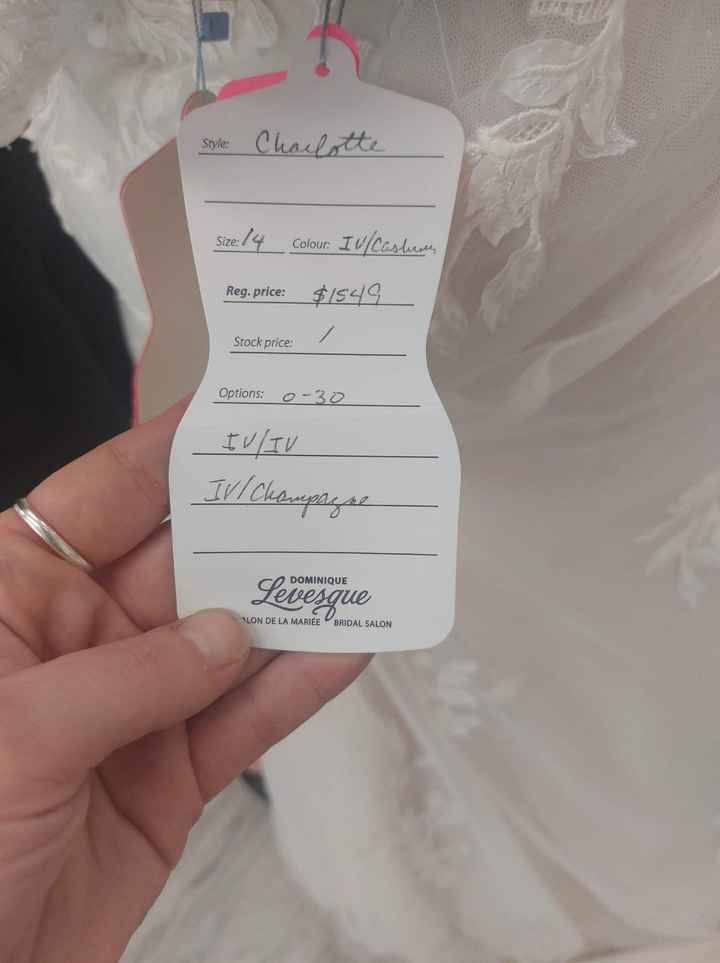 Style: Charlotte
Size: 14 Colour: IV/Cashmere
Reg. price: $1549
Stock price: /
Options: 0-30
IV/IV
IV/Champagne
DOMINIQUE
Levesque
ALON DE LA MARIÉE BRIDAL SALON